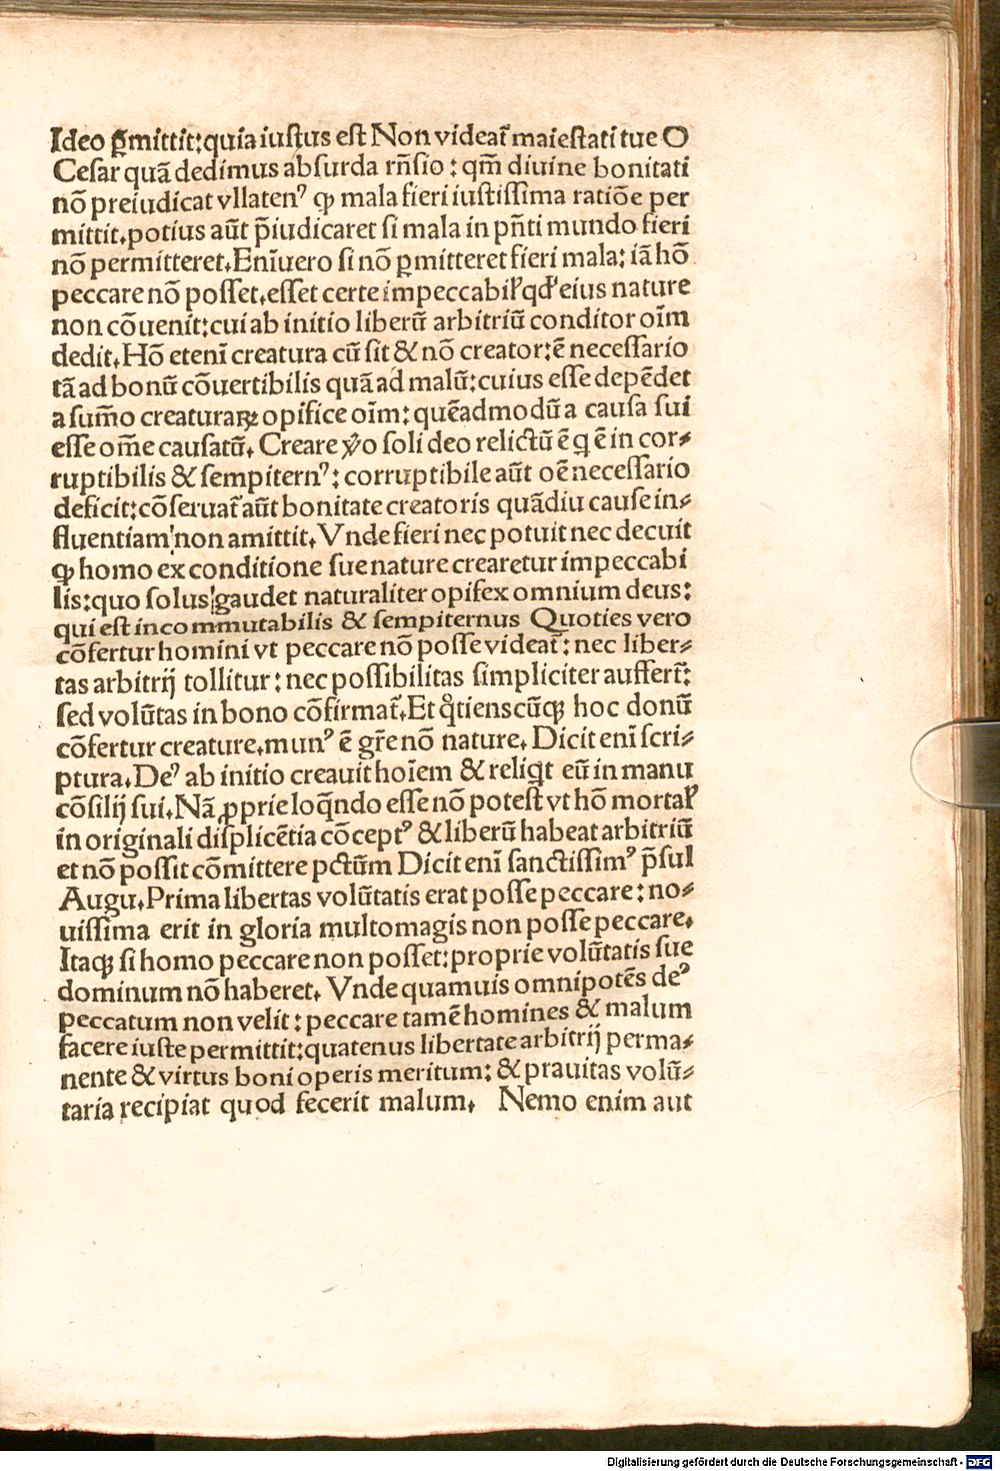 Ideo ꝑmittit: quia iustus est Non videat᷑ maiestati tue O
Cesar quā dedimus absurda rn̄sio: qm̄ diuine bonitati
nō preiudicat vllatenꝰ ꝙ mala fieri iustissima ratiōe per
mittit. potius aūt p̄iudicaret si mala in pn̄ti mundo fieri
nō permitteret. Enīuero si nō ꝑmitteret fieri mala: iā hō
peccare nō posset. esset certe impeccabiłqđ eius nature
non cōuenit: cui ab initio liberū arbitriū conditor oīm
dedit. Hō etenī creatura cū sit & nō creator: ē necessario
tā ad bonū cōuertibilis quā ad malū: cuius esse depēdet
a sum̄o creaturaꝝ opifice oīm: quēadmodū a causa sui
esse om̄e causatū. Creare ꝟo soli deo relictū ē q̄ ē in cor⸗
ruptibilis & sempiternꝰ: corruptibile aūt oē necessario
deficit: cōseruat᷑ aūt bonitate creatoris quādiu cause in⸗
fluentiam non amittit. Vnde fieri nec potuit nec decuit
ꝙ homo ex conditione sue nature crearetur impeccabi
lis: quo solus gaudet naturaliter opifex omnium deus:
qui est incommutabilis & sempiternus Quoties vero
cōfertur homini vt peccare nō posse videat᷑: nec liber⸗
tas arbitrij tollitur: nec possibilitas simpliciter auffert᷑:
sed volūtas in bono cōfirmat᷑. Et qͦtienscūqꝫ hoc donū
cōfertur creature. munꝰ ē gr̄e nō nature. Dicit enī scri⸗
ptura. Deꝰ ab initio creauit hoīem & reliqͥt eū in manu
cōsilij sui. Nā ꝓprie loq̄ndo esse nō potest vt hō mortał
in originali displicētia cōceptꝰ & liberū habeat arbitriū
et nō possit cōmittere pctūm Dicit enī sanctissimꝰ p̄sul
Augu. Prima libertas volūtatis erat posse peccare: no⸗
uissima erit in gloria multomagis non posse peccare.
Itaqꝫ si homo peccare non posset: proprie volūtatis sue
dominum nō haberet. Vnde quamuis omnipotēs deꝰ
peccatum non velit: peccare tamē homines & malum
facere iuste permittit: quatenus libertate arbitrij perma⸗
nente & virtus boni operis meritum: & prauitas volū⸗
taria recipiat quod fecerit malum. Nemo enim aut
Digitalisierung gefördert durch die Deutsche Forschungsgemeinschaft - DFG